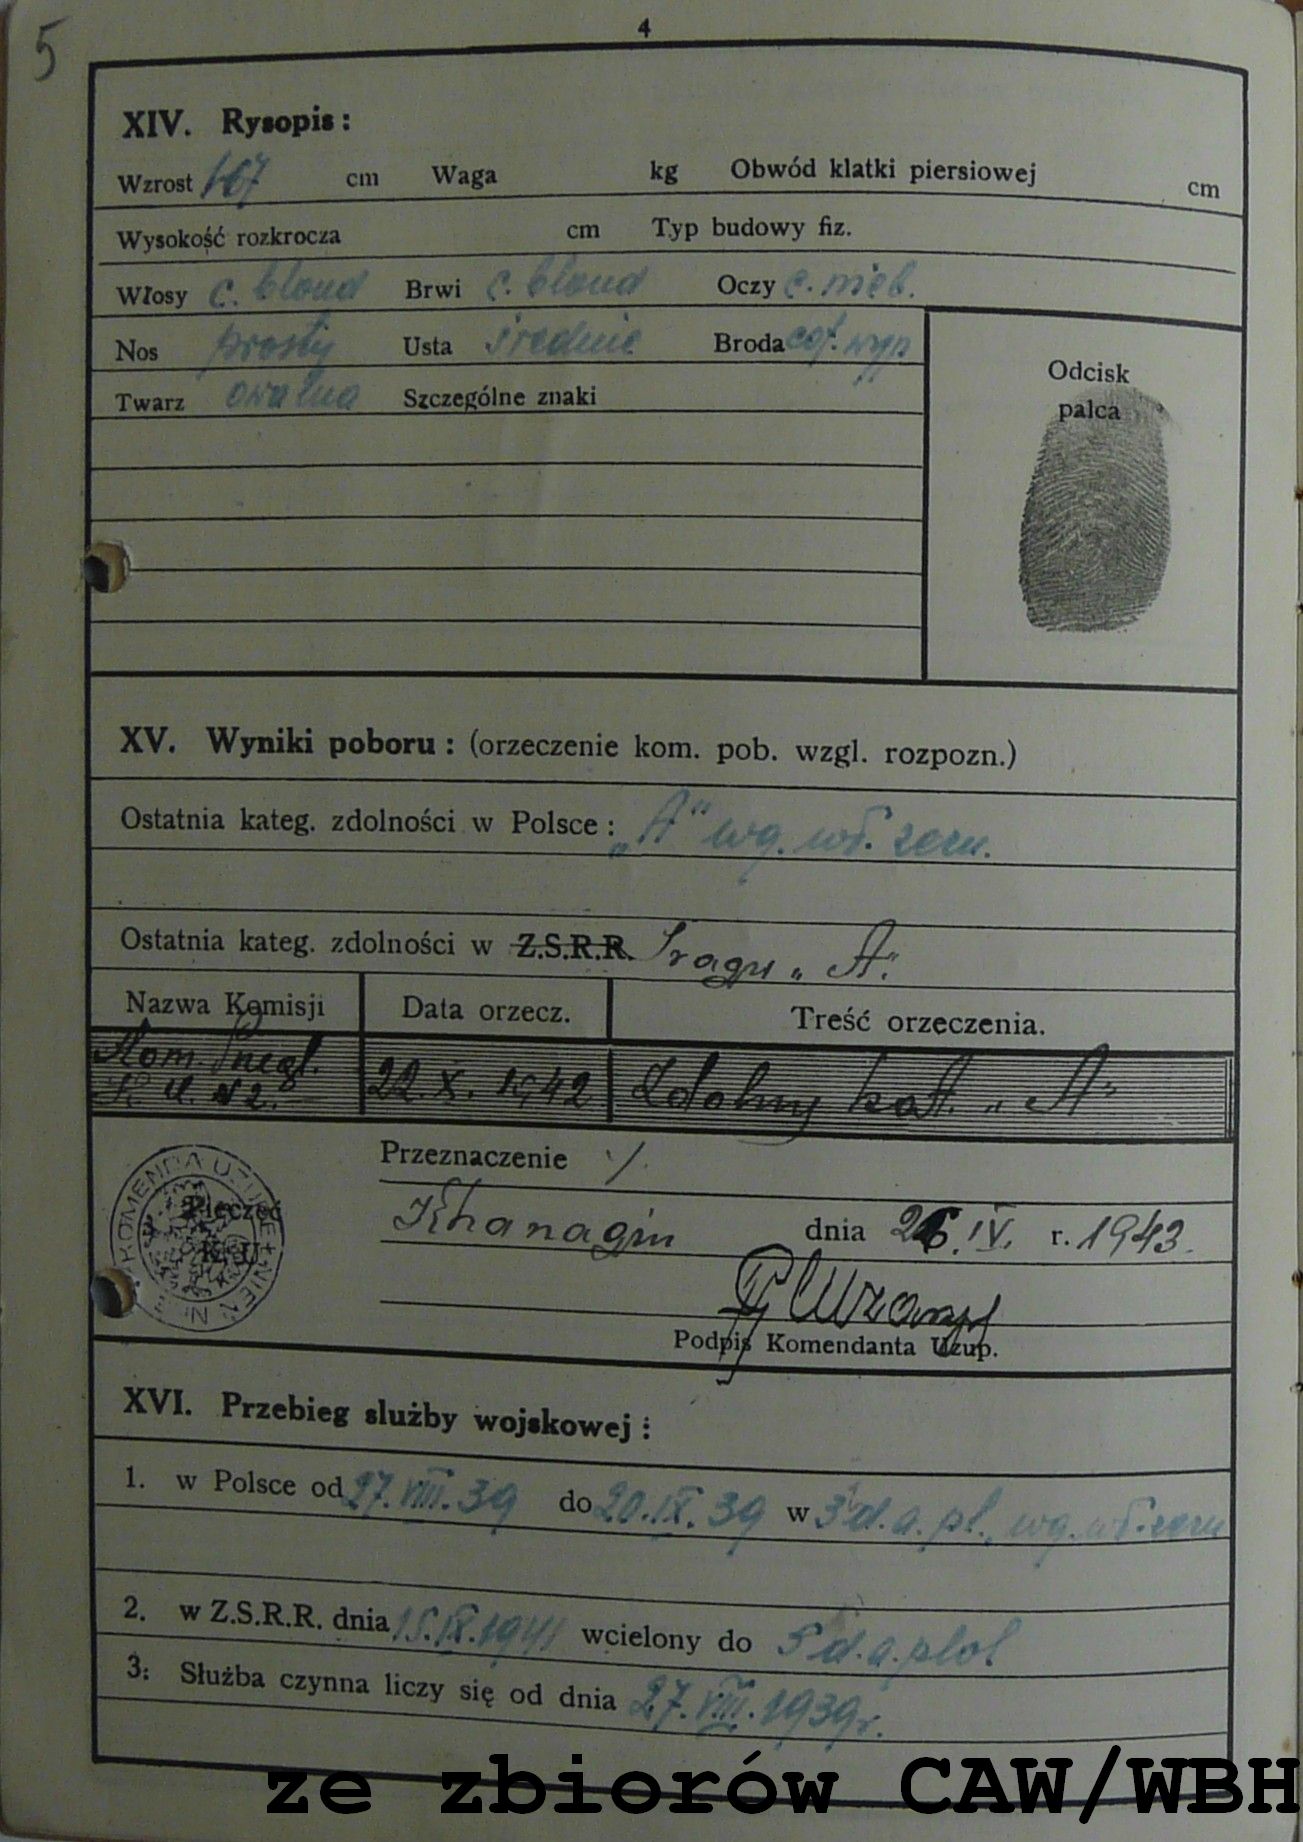 5
4
XIV. Rysopis:
Wzrost 167 cm Waga kg Obwód klatki piersiowej cm
Wysokość rozkrocza cm Typ budowy fiz.
Włosy c. blond Brwi c. blond Oczy c. nieb.
Nos prosty Usta średnie Broda cof. wyp
Twarz owalna Szczególne znaki
Odcisk
palca
XV. Wyniki poboru: (orzeczenie kom. pob. wzgl. rozpozn.)
Ostatnia kateg. zdolności w Polsce: „A" wg. wł. zezn.
Ostatnia kateg. zdolności w Z.S.R.R. Iraqu „A".
Nazwa Komisji Data orzecz. Treść orzeczenia.
Kom. Przegl.
K. U. N 2. 22. X. 1942 Zdolny kat. „A"
Przeznaczenie /.
KOMENDA UZUPEŁNIEŃ
Pieczęć
K. U.
Khanagin dnia 26. IV. r. 1943.
Podpis Komendanta Uzup.
XVI. Przebieg służby wojskowej:
1. w Polsce od 27. VIII. 39 do 20. IX. 39 w 3 d. a. pl., wg. wł. zezn
2. w Z.S.R.R. dnia 15. IX. 1941 wcielony do 5 d. a. plot
3. Służba czynna liczy się od dnia 27. VIII. 1939 r.
ze zbiorów CAW/WBH